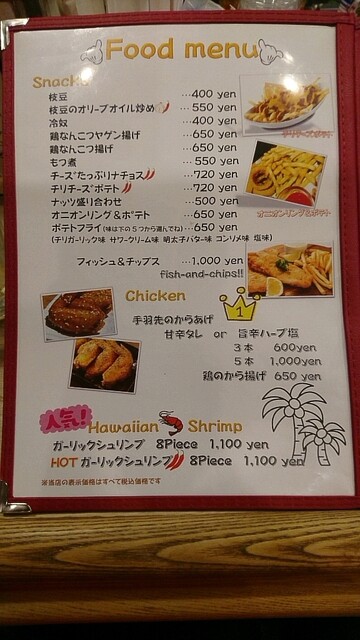 Food menu
Snacks
枝豆 …400 yen
枝豆のオリーブオイル炒め …550 yen
冷奴 …400 yen
鶏なんこつヤゲン揚げ …650 yen
鶏なんこつ揚げ …650 yen
もつ煮 …550 yen
チーズたっぷりナチョス …720 yen
チリチーズポテト …720 yen
ナッツ盛り合わせ …500 yen
オニオンリング&ポテト …650 yen
ポテトフライ(味は下の5つから選んでね)…650 yen
(チリガーリック味 サワークリーム味 明太子バター味 コンソメ味 塩味)
チリチーズポテト
オニオンリング&ポテト
フィッシュ&チップス …1,000 yen
fish-and-chips!!
Chicken
1
手羽先のからあげ
甘辛タレ or 旨辛ハーブ塩
3本 600yen
5本 1,000yen
鶏のから揚げ 650 yen
人気!
Hawaiian Shrimp
ガーリックシュリンプ 8Piece 1,100 yen
HOT ガーリックシュリンプ 8Piece 1,100 yen
※当店の表示価格はすべて税込価格です